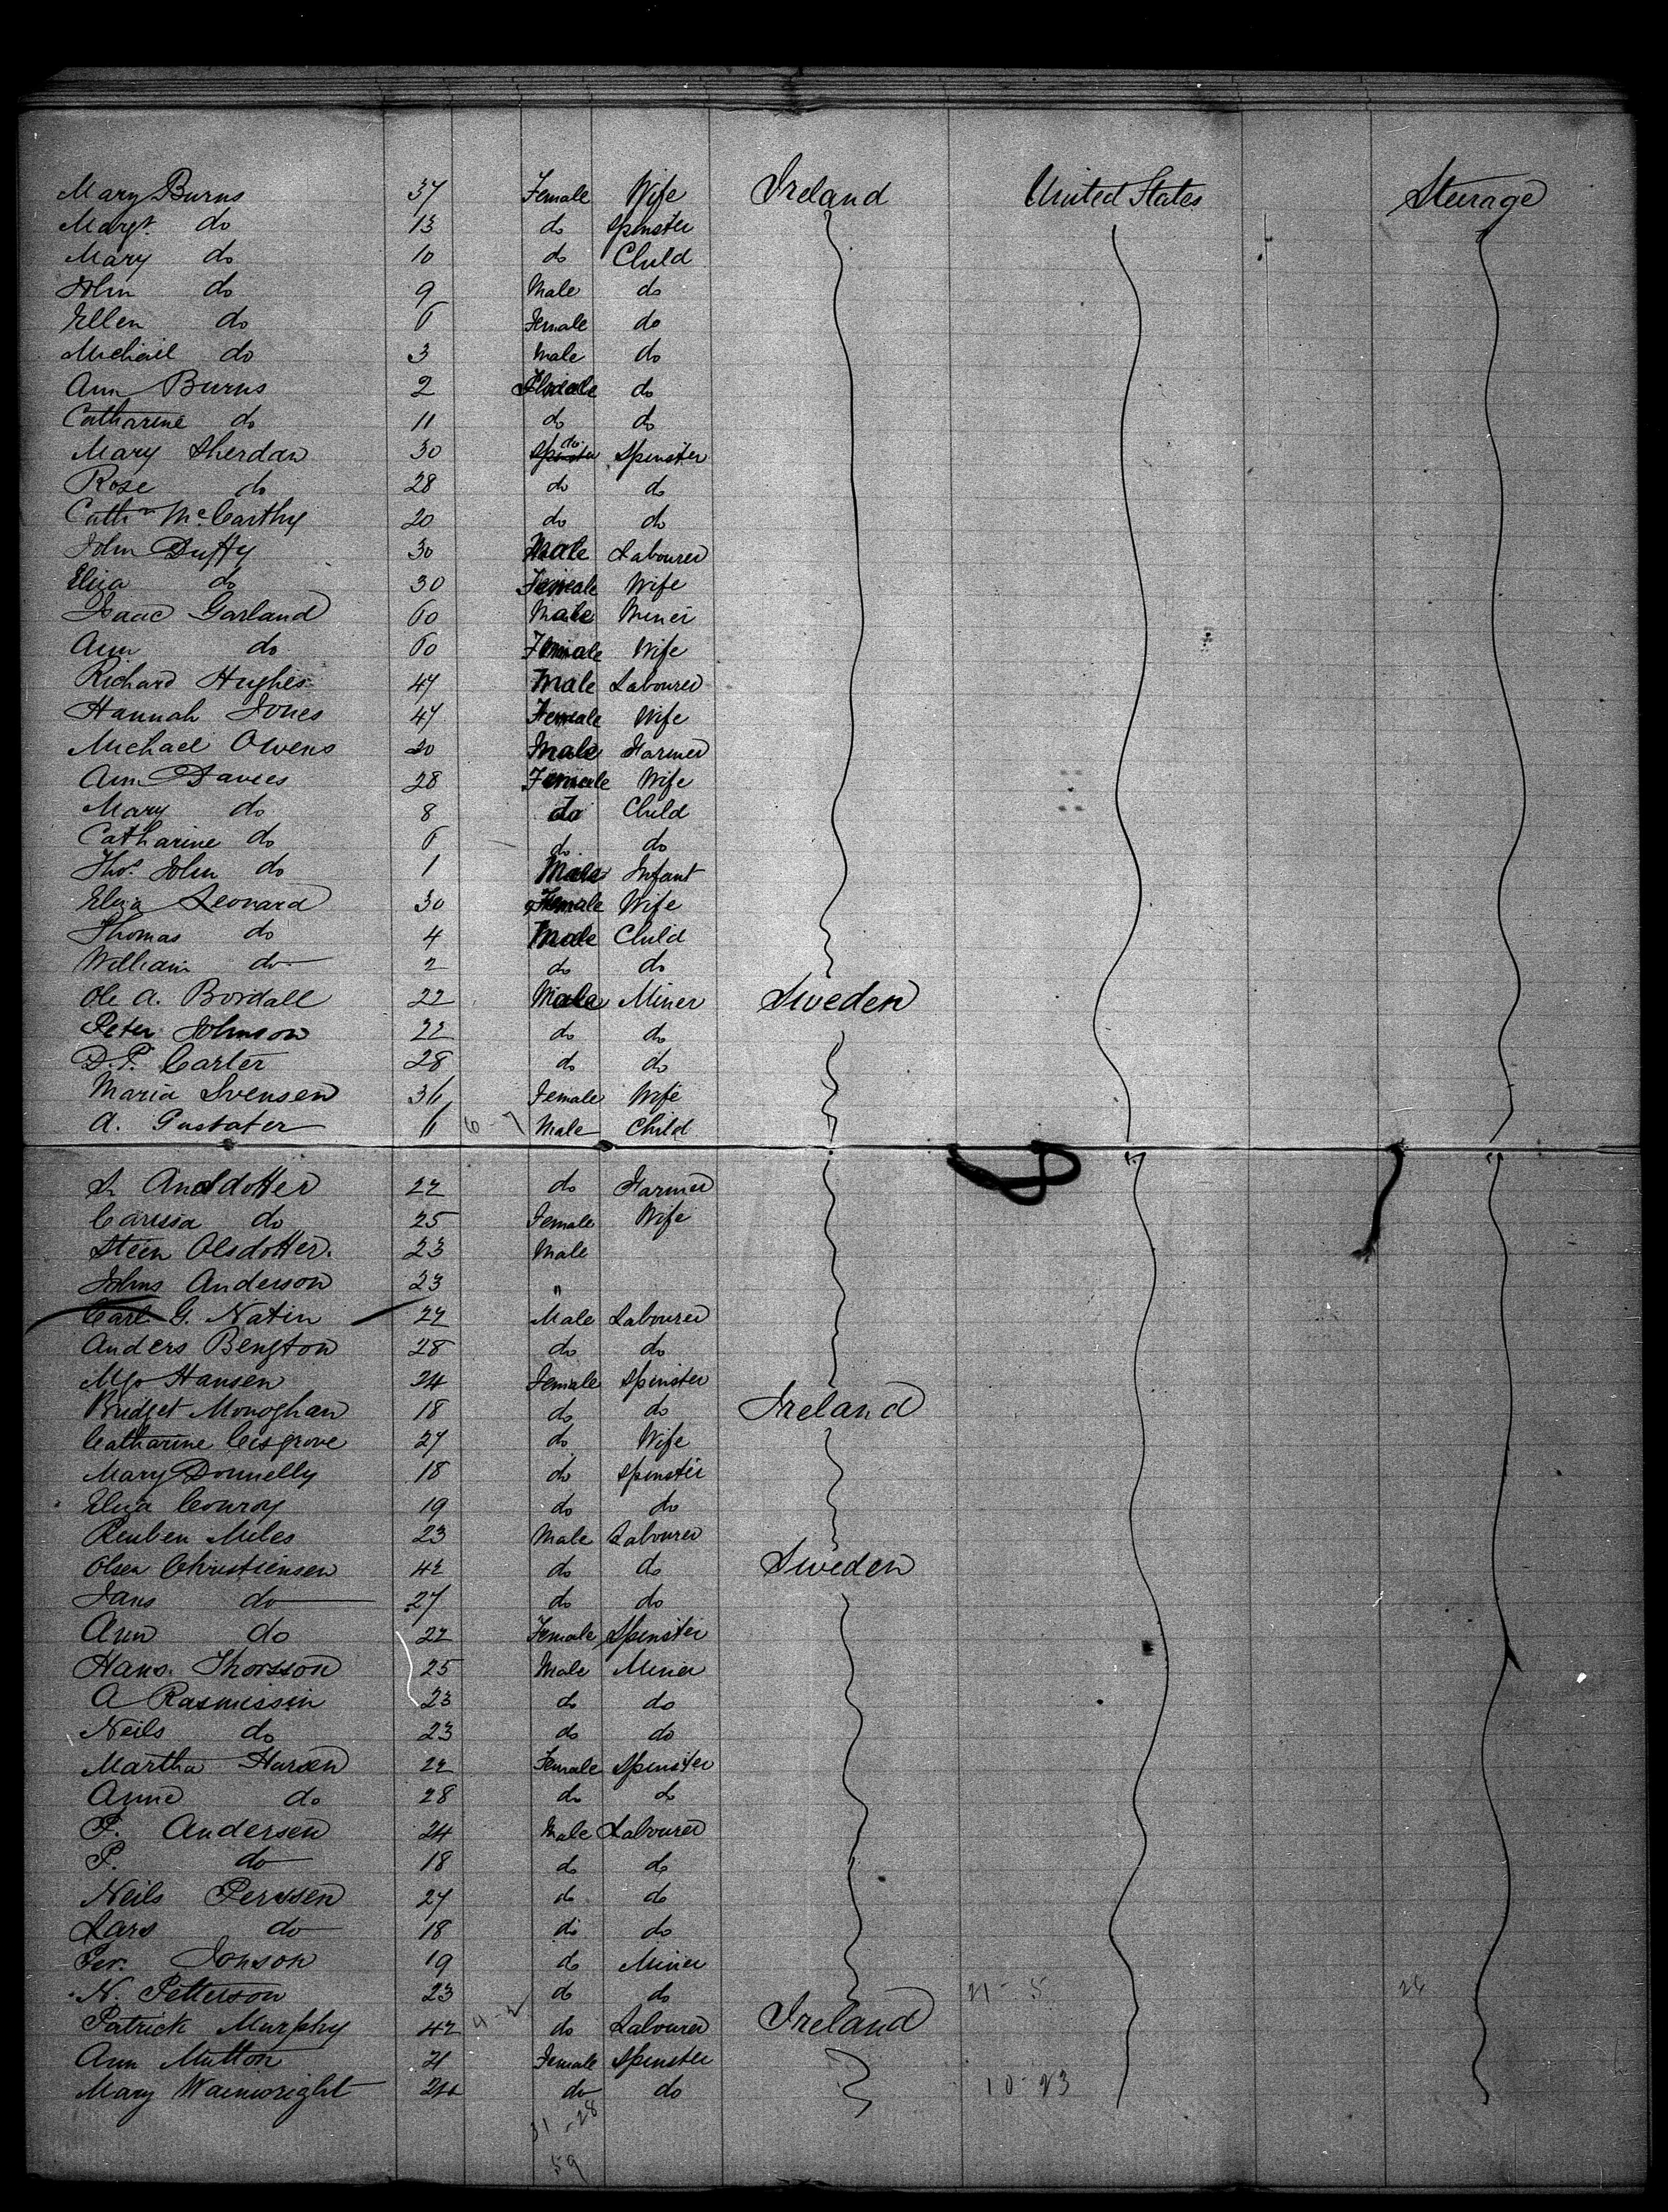 Mary Burns 37 Female Wife Ireland United States Steerage
Margt. do 13 do Spinster
Mary do 10 do Child
John do 9 Male do
Ellen do 6 Female do
Michael do 3 Male do
Ann Burns 2 Female do
Catharine do 11 do do
Mary Sherdan 30 do Spinster
Rose do 28 do do
Cathn McCarthy 20 do do
John Duffy 30 Male Labourer
Eliza do 30 Female Wife
Isaac Garland 60 Male Miner
Ann do 60 Female Wife
Richard Hughes 47 Male Labourer
Hannah Jones 47 Female Wife
Michael Owens 20 Male Farmer
Ann Davies 28 Female Wife
Mary do 8 do Child
Catharine do 6 do do
Thos. John do 1 Male Infant
Eliza Leonard 30 Female Wife
Thomas do 4 Male Child
William do 2 do do
Ole A. Bordall 22 Male Miner Sweden
Peter Johnson 22 do do
D. P. Carter 28 do do
Maria Svensen 36 Female Wife
A. Gustater 6 6-7 Male Child
Andsdotter 22 do Farmer
Carissa do 25 Female Wife
Steen Olsdotter. 23 Male
Johns Anderson 23 "
Carl G. Natin 22 Male Labourer
Anders Bengton 28 do do
Hansen 24 Female Spinster
Bridget Monoghan 18 do do Ireland
Catharine Cisgrove 27 do Wife
Mary Donnelly 18 do Spinster
Eliza Conroy 19 do do
Reuben Miles 23 Male Labourer
Olsen Christiensen 42 do do Sweden
Jans do 27 do do
Ann do 22 Female Spinster
Hans. Thorsson 25 Male Miner
A Rasmissin 23 do do
Neils do 23 do do
Martha Hansen 22 Female Spinster
Anne do 28 do do
P. Andersen 24 Male Labourer
P. do 18 do do
Neils Perssen 27 do do
Lars do 18 do do
Per. Jonson 19 do Miner
N. Petterson 23 do do 21-5 26
Patrick Murphy 42 4-2 do Labourer Ireland
Ann Mutton 21 Female Spinster
Mary Wainwright 24 do do 10-23
31-28
59